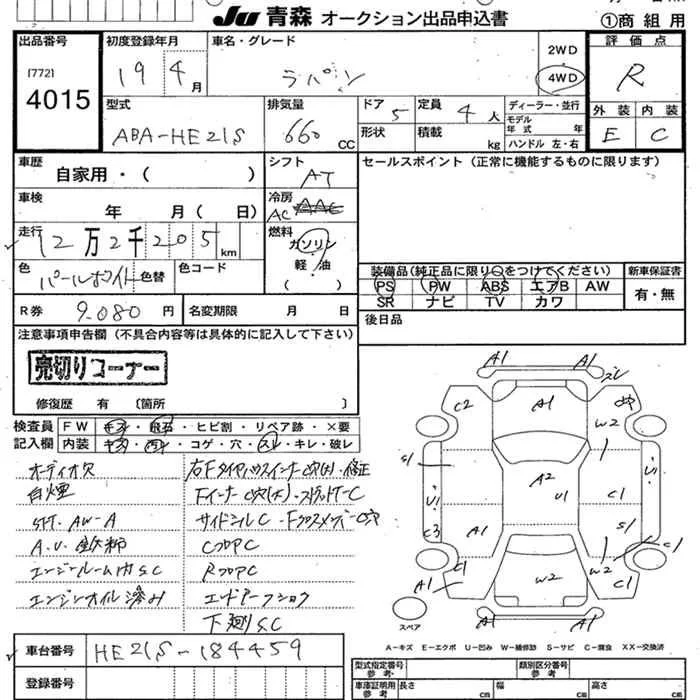 JU 青森 オークション出品申込書
①商 組 用
出品番号
[772]
4015
初度登録年月
19 4月
車名・グレード
ラパン
2WD
4WD
評価点
R
型式
ABA-HE21S
排気量
660 CC
ドア 5
定員 4人
形状
積載 kg
ディーラー・並行
モデル年式 年
ハンドル 左・右
外装 内装
E C
車歴
自家用・( )
シフト
AT
セールスポイント(正常に機能するものに限ります)
車検
年 月( 日)
冷房
AC AAC
走行
12万2千205km
燃料
ガソリン
軽・油
( )
色
パールホワイト 色替
色コード
装備品(純正品に限り○をつけてください)
新車保証書
PS PW ABS エアB AW
SR ナビ TV カワ
有・無
R券 9,080円
名変期限 月 日
後日品
注意事項申告欄(不具合内容等は具体的に記入して下さい)
売切りコーナー
修復歴 有 〔箇所 〕
検査員記入欄
FW キズ・飛石・ヒビ割・リペア跡・×要
内装 キズ・汚レ・コゲ・穴・スレ・キレ・破レ
オーディオ欠
白煙
A.V.
エンジンルーム内S.C
エンジンオイル滲み
サイドシルC
CフロアC
RフロアC
下廻S.C
A1 A1
スレ
C2 A1 穴
W2
S1 A2 U1
U1 U1 C1
C3 A1 S1
C1
W2
A1 C1 W2 C1
A1 A1
スペア
A-キズ E-エクボ U-凹み W-補修跡 S-サビ C-腐食 XX-交換済
車台番号 HE21S-184459
登録番号
型式指定番号 参考
類別区分番号 参考
車庫証明用 参考
長さ cm
幅 cm
高さ cm